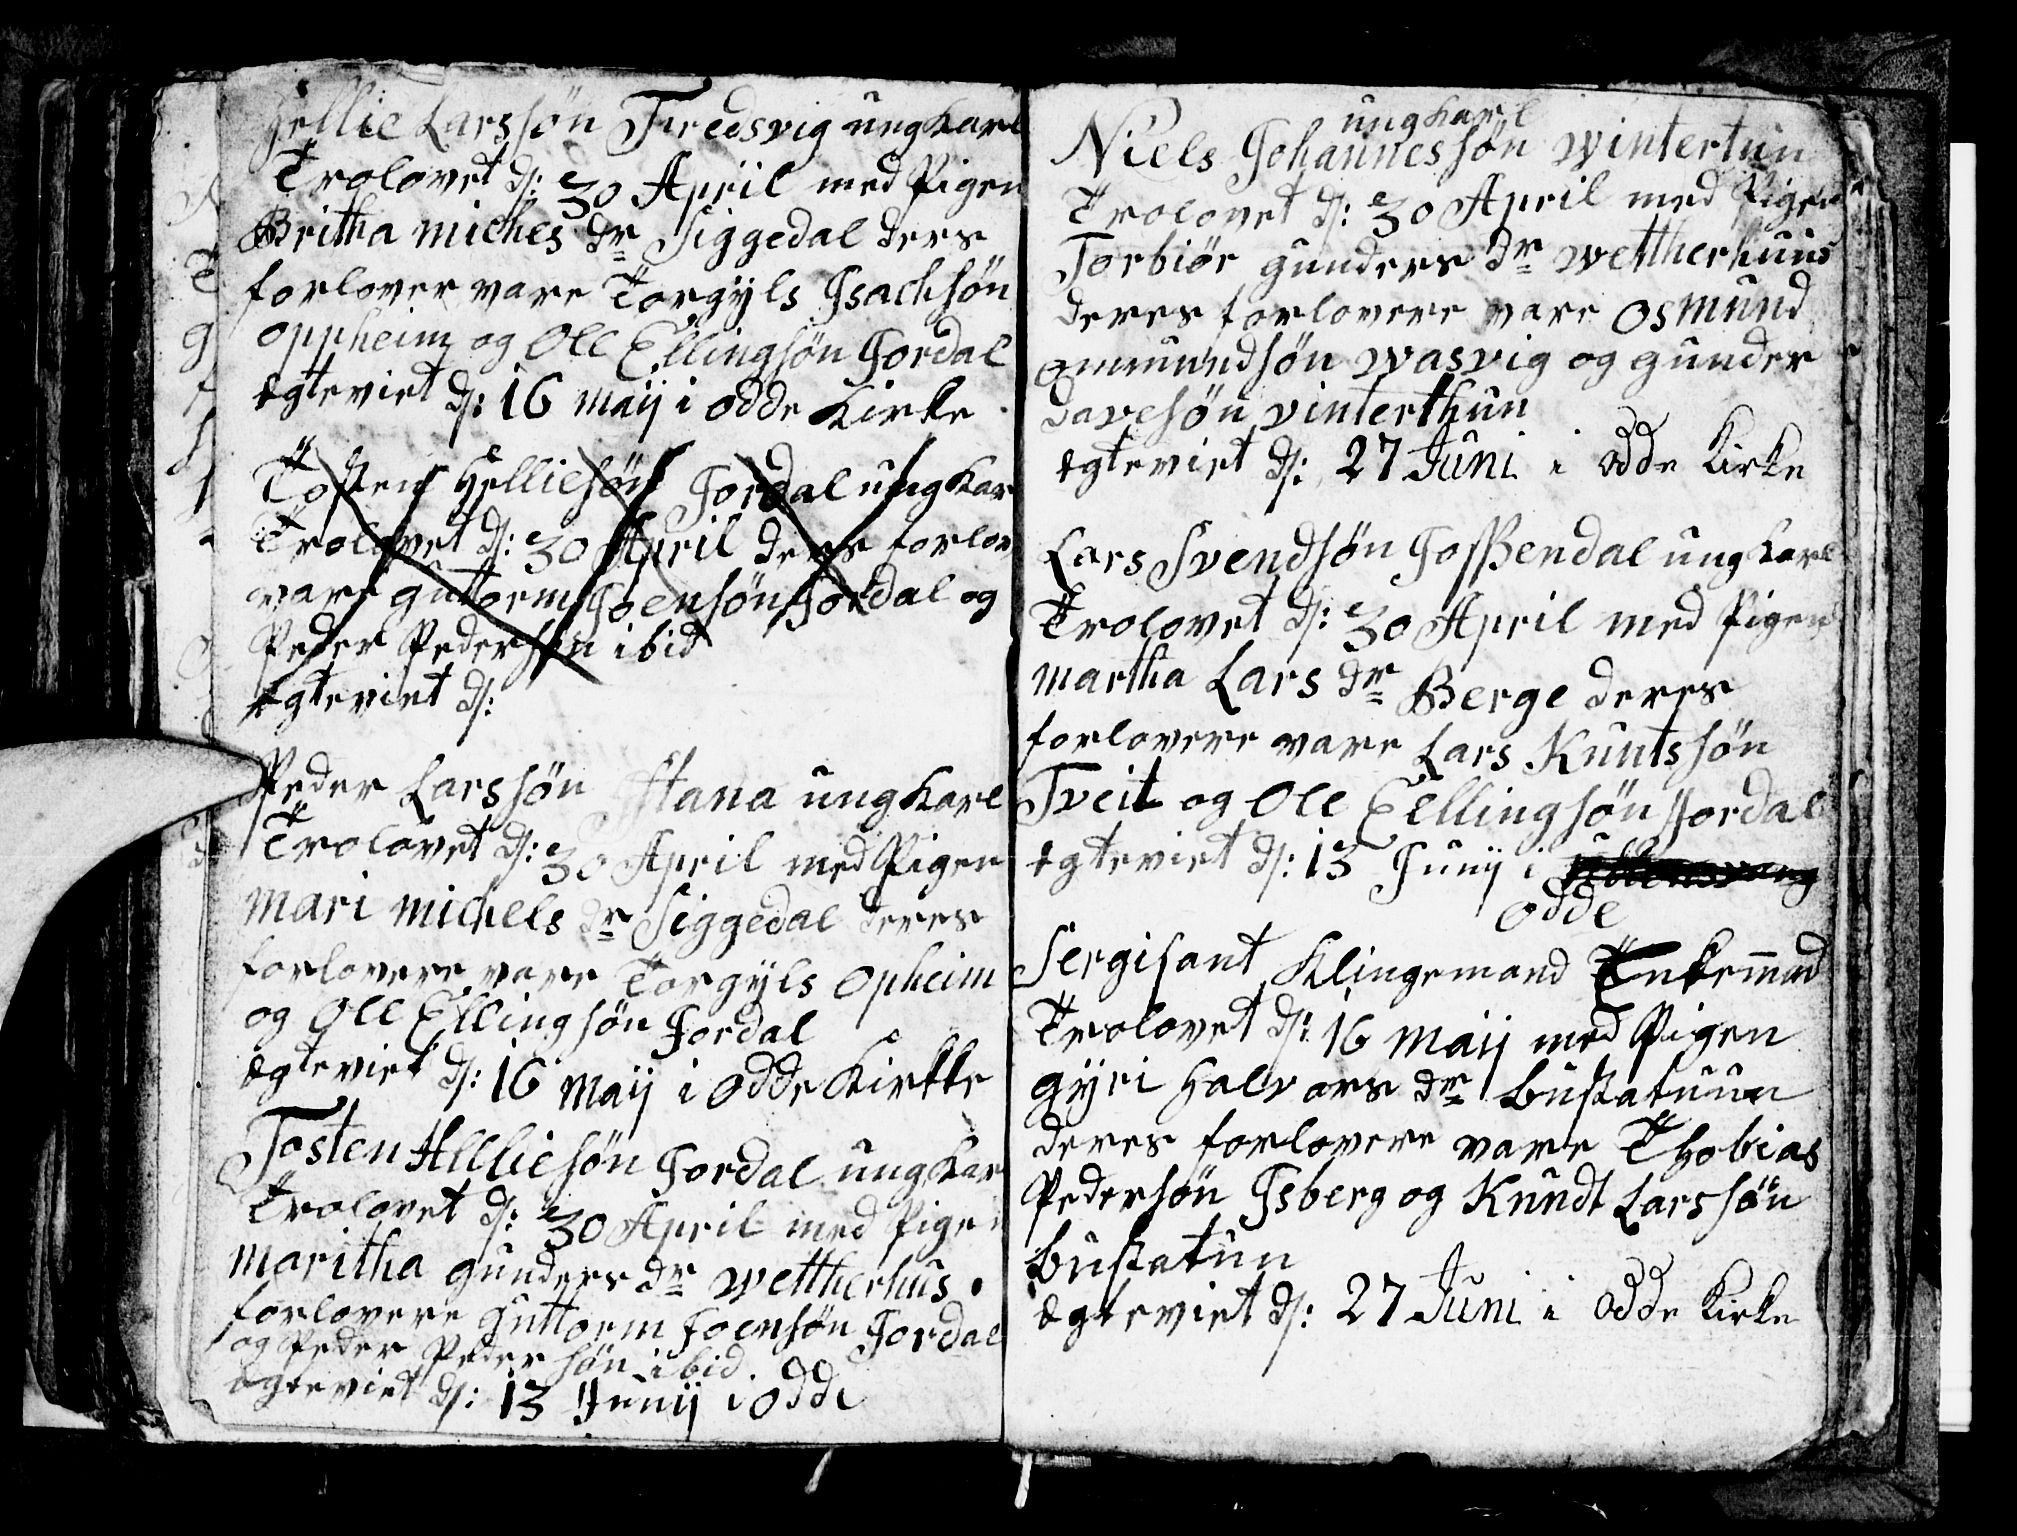 Hellie Larssøn Tredsvig ungkarl
Trolovet d: 30 April med Pigen
Britha michels dr Siggedal ders
forlover vare Torgÿls Isachsøn
oppheim og Ole Ellingsøn Jordal
ægteviet d: 16 maij i Odde Kirke
Tosten Helliesøn Jordal ungkar
Trolovet d: 30 April ders forlov
vare guttorm Joensøn Jordal og
Peder Pedersøn ibid
ægteviet d:
Peder Larssøn Stana ungkarl
Trolovet d: 30 April med Pigen
mari michels dr Siggedal deres
forlovere vare Torgÿls Opheim
og Ole Ellingsøn Jordal
ægteviet d: 16 maij i Odde Kirkke
Tosten Helliesøn Jordal ungkar
Trolovet d: 30 April med Pigen
maritha gunders dr wettherhus
forlovere guttorm Joensøn Jordal
og Peder Pedersøn ibid.
ægteviet d: 13 Junij i Odde
ungkarl
Niels Johannessøn wintertun
Trolovet d: 30 April med Pigen
Torbiør gunders dr wettherhuus
deres forlovere vare Osmund
Ommundsøn wasvig og gunder
davesøn vinterthun
ægteviet d: 27 Juni i Odde Kirke
Lars Svendsøn Jossendal ungkarl
Trolovet d: 30 April med Pigen
martha Lars dr Berge deres
forlovere vare Lars Knutssøn
Tveit og Ole Ellingsøn Jordal
ægteviet d: 13 Junij i
Odde
Sergisant Klingemand Enkemand
Trolovet d: 16 maij med Pigen
gÿri halvors dr bustatuun
deres forlovere vare Thobias
Pedersøn Isberg og Knudt Larssøn
bustatun
ægteviet d: 27 Juni i Odde Kirke